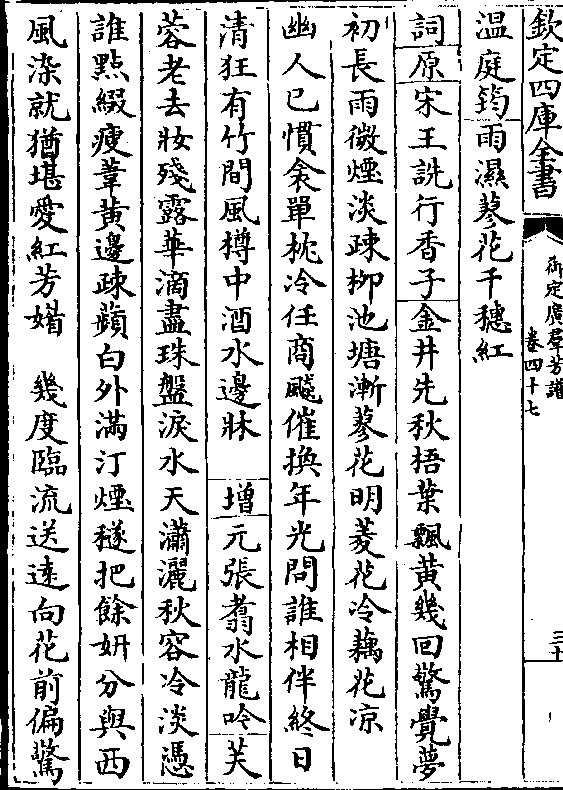 欽定四庫全書
御定廣羣芳譜
卷四十七
三十
温庭筠雨濕蓼花千穗紅
詞原宋王詵行香子金井先秋梧葉飄黄幾回驚覺夢
初長雨微煙淡疎柳池塘漸蓼花明菱花冷藕花凉
幽人已慣衾單枕冷任商飈催換年光問誰相伴終日
清狂有竹間風樽中酒水邊牀　增元張翥水龍吟芙
蓉老去妝殘露華滴盡珠盤淚水天瀟灑秋容冷淡憑
誰點綴瘦葦黄邊疎蘋白外滿汀煙穟把餘妍分與西
風染就猶堪愛紅芳媘　幾度臨流送逺向花前偏驚